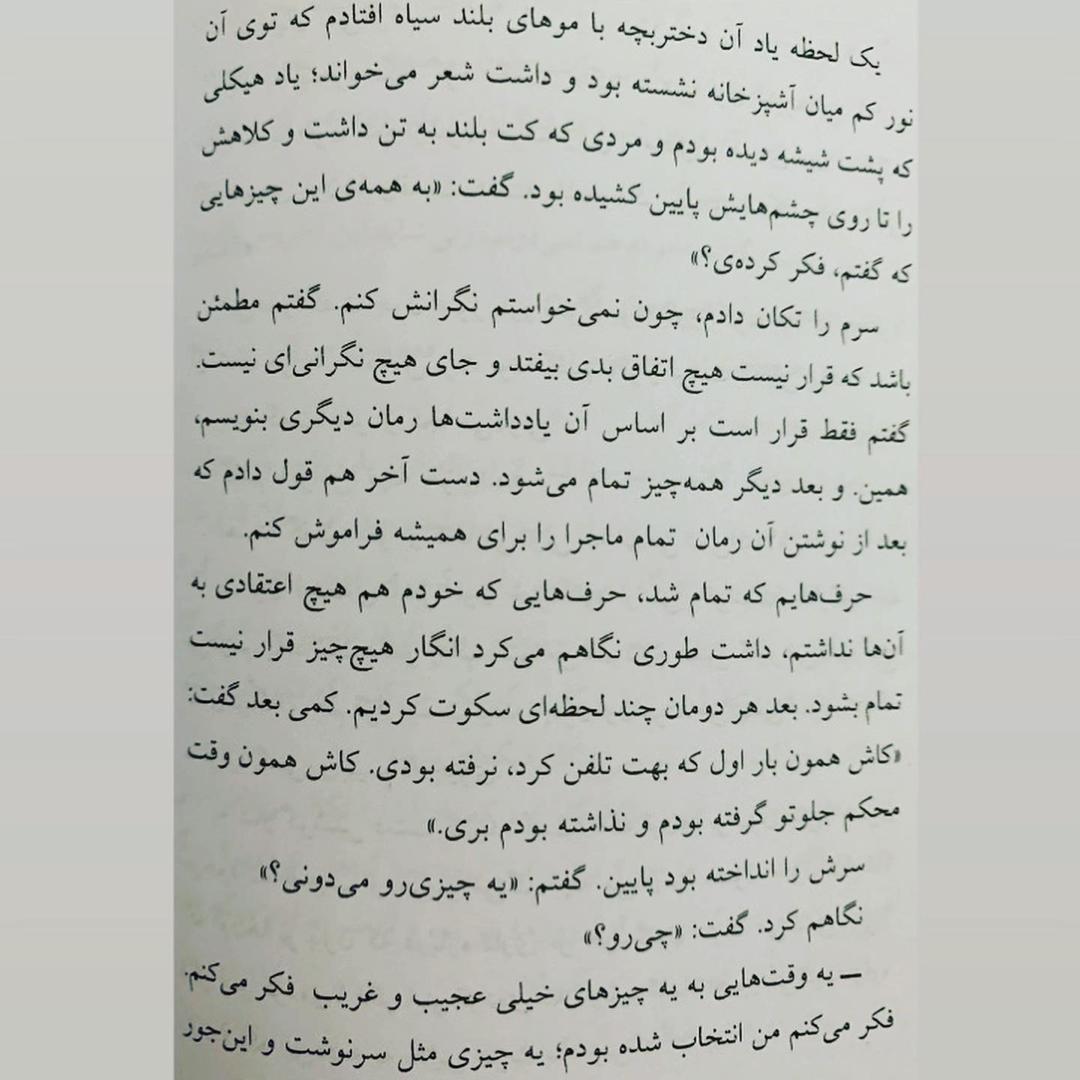 یک لحظه یاد آن دختربچه با موهای بلند سیاه افتادم که توی آن
نور کم میان آشپزخانه نشسته بود و داشت شعر می‌خواند؛ یاد هیکلی
که پشت شیشه دیده بودم و مردی که کت بلند به تن داشت و کلاهش
را تا روی چشم‌هایش پایین کشیده بود. گفت: «به همه‌ی این چیزهایی
که گفتم، فکر کرده‌ی؟»
سرم را تکان دادم، چون نمی‌خواستم نگرانش کنم. گفتم مطمئن
باشد که قرار نیست هیچ اتفاق بدی بیفتد و جای هیچ نگرانی‌ای نیست.
گفتم فقط قرار است بر اساس آن یادداشت‌ها رمان دیگری بنویسم،
همین. و بعد دیگر همه‌چیز تمام می‌شود. دست آخر هم قول دادم که
بعد از نوشتن آن رمان تمام ماجرا را برای همیشه فراموش کنم.
حرف‌هایم که تمام شد، حرف‌هایی که خودم هم هیچ اعتقادی به
آن‌ها نداشتم، داشت طوری نگاهم می‌کرد انگار هیچ‌چیز قرار نیست
تمام بشود. بعد هر دومان چند لحظه‌ای سکوت کردیم. کمی بعد گفت:
«کاش همون بار اول که بهت تلفن کرد، نرفته بودی. کاش همون وقت
محکم جلوتو گرفته بودم و نذاشته بودم بری.»
سرش را انداخته بود پایین. گفتم: «یه چیزی‌رو می‌دونی؟»
نگاهم کرد. گفت: «چی‌رو؟»
ــ یه وقت‌هایی به یه چیزهای خیلی عجیب و غریب فکر می‌کنم.
فکر می‌کنم من انتخاب شده بودم؛ یه چیزی مثل سرنوشت و این‌جور